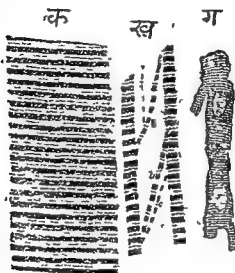 क ख ग